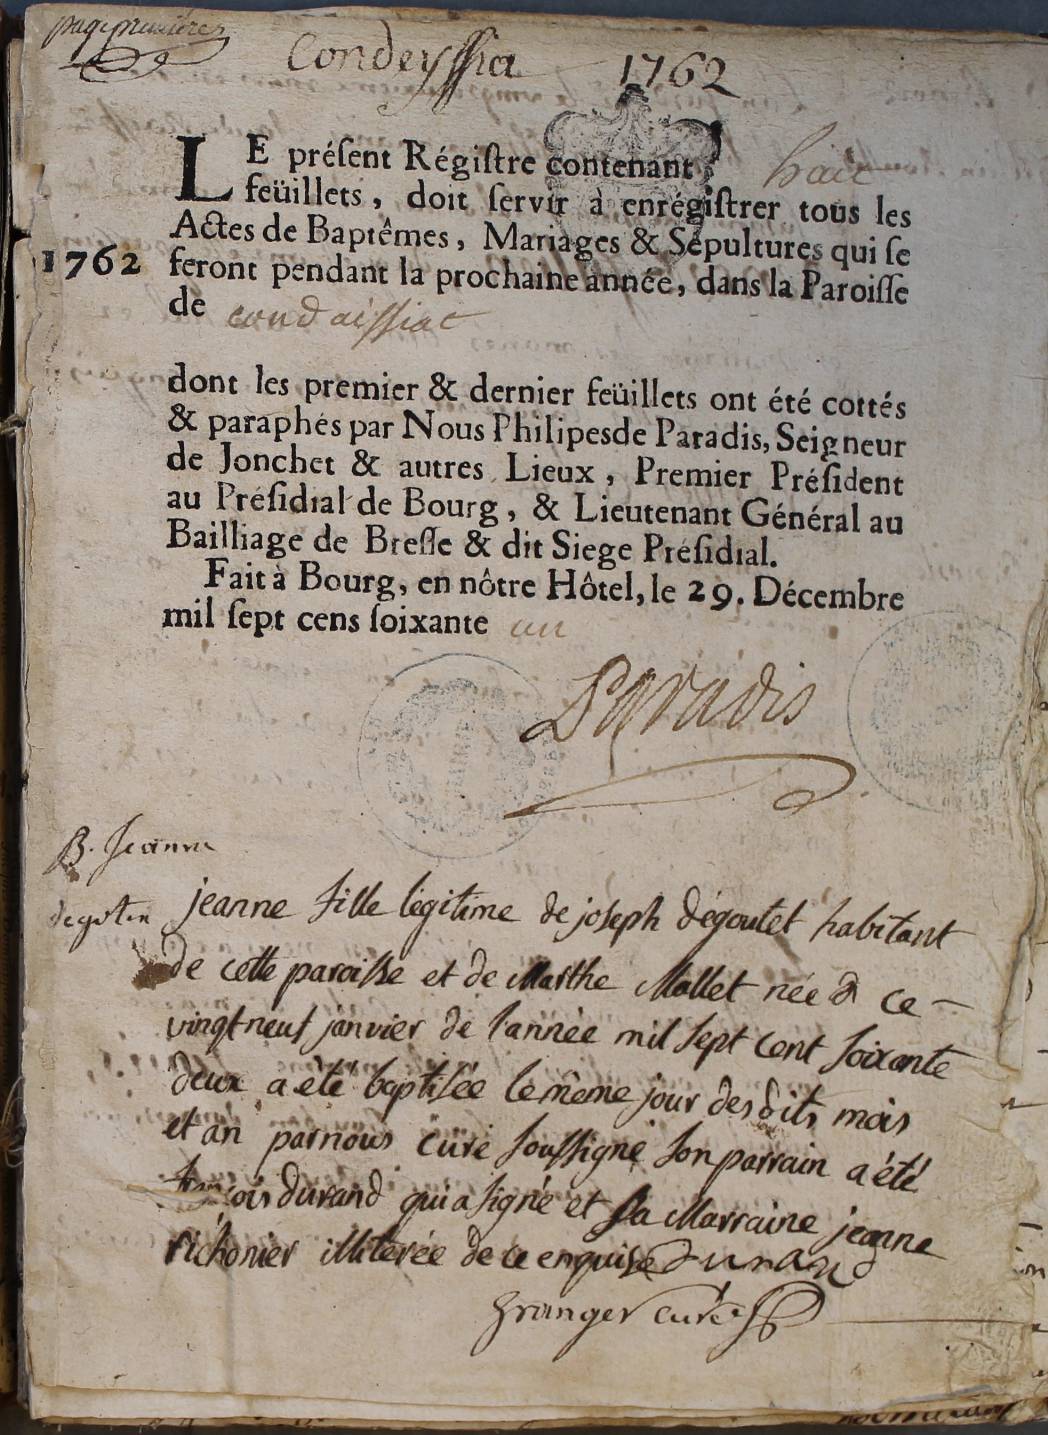 page premiere
Condeyssia 1762
LE préſent Régiſtre contenant huit
feüillets, doit ſervir à enrégiſtrer tous les
Actes de Baptêmes, Mariages & Sépultures qui ſe
1762 feront pendant la prochaine année, dans la Paroiſſe
de condaissiat
dont les premier & dernier feüillets ont été cottés
& paraphés par Nous Philipesde Paradis, Seigneur
de Jonchet & autres Lieux, Premier Préſident
au Préſidial de Bourg, & Lieutenant Général au
Bailliage de Breſſe & dit Siege Préſidial.
Fait à Bourg, en nôtre Hôtel, le 29. Décembre
mil ſept cens ſoixante un
Paradis
B. Jeanne
degoten
jeanne fille légitime de joseph dégoutet habitant
de cette paroisse et de Marthe Mallet née ce
vingt neuf janvier de l'année mil sept cent soixante
deux a été baptisée le même jour des dits mois
et an par nous curé soussigné son parrain a été
françois durand qui a signé et sa Marraine jeanne
richonier illiterée de ce enquise Durand
Granger curé